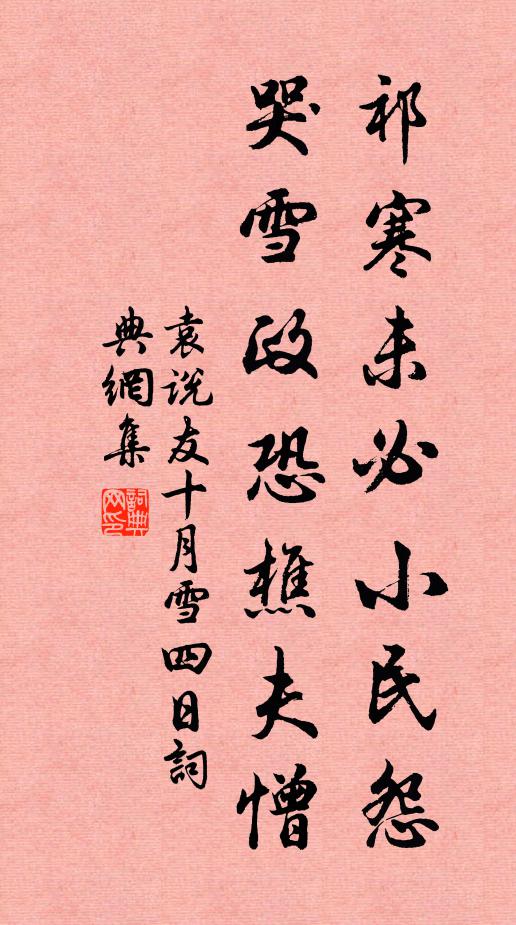 祁寒未必小民怨
哭雪政恐樵夫憎
袁說友十月雪四日詞
典網集
詞典
网印